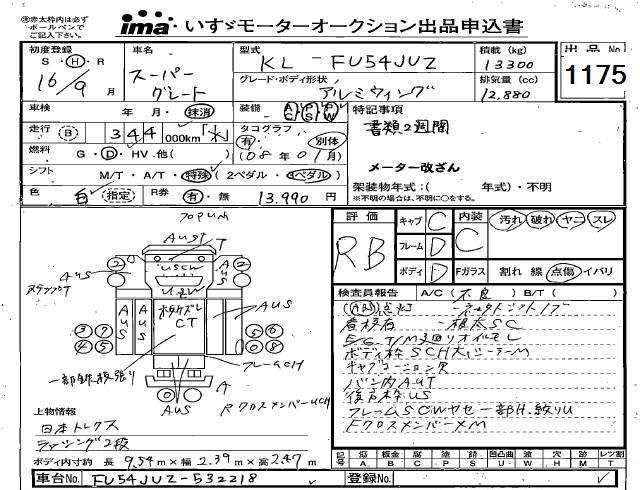 ※赤太枠内は必ず
ボールペンで
ご記入下さい。
ima いすゞモーターオークション出品申込書
初度登録 S・H・R 16/9月
車名 スーパーグレート
型式 KL-FU54JUZ
グレード・ボディ形状 アルミウィング
積載(kg) 13300
排気量(cc) 12,880
出品No 1175
車検 年 月・抹消
装備 AC PS PW
走行 B 344 000km
タコグラフ 有・別体
燃料 G・D・HV・他( ) (08年01月)
シフト M/T・A/T・特殊(2ペダル・3ペダル)
色 白 指定 R券 有・無 13,990円
特記事項
書類2週間
メーター改ざん
架装物年式:( 年式)・不明
※不明の場合は、不明に○をする。
評価 RB
キャブ C
フレーム D
ボディ D
内装 C 汚れ 破れ ヤニ スレ
Fガラス 割れ 線 点傷 イバリ
検査員報告 A/C(不良) B/T( )
E/G,T/M廻りオイルモレ
キャブコーション欠
バン内AUT
フレームSCWヤセ一部H
FクロスメンバーXM
AUST T
AUS
USCW
CT
AUS
AUS
AUS
フレームCH
一部鉄板張り
A
AUS
RクロスメンバーUCH
上物情報
日本トレクス
ラッシング2段
ボディ内寸約 長 9.54m×幅 2.39m×高 2.47m
記号 傷A 板金B 腐C 塗P 錆S 凹凸曲U 波W 穴H 欠M レツ割T
車台No. FU54JUZ-532218
登録No.